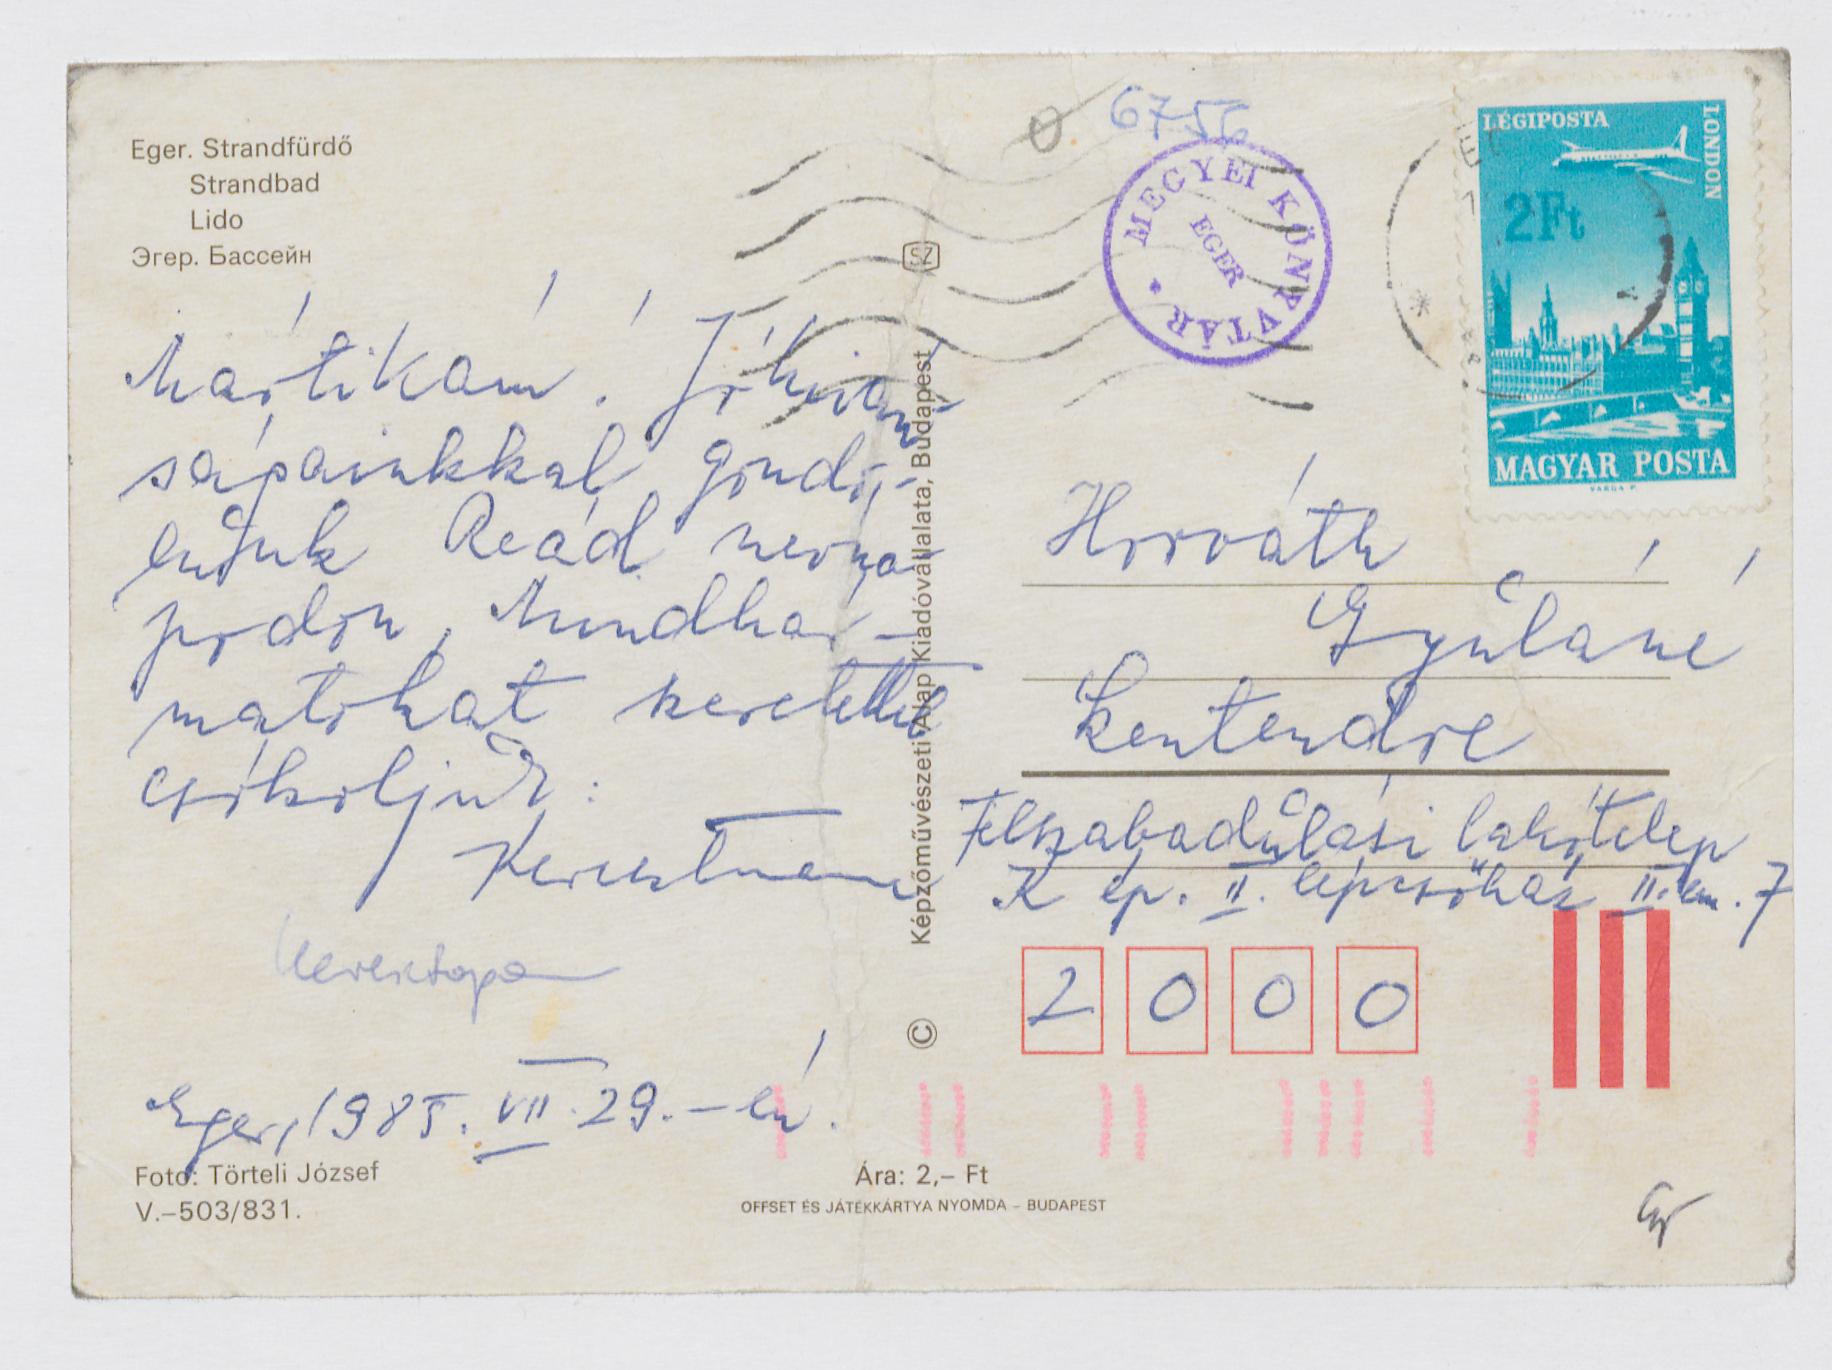 Eger. Strandfürdő
Strandbad
Lido
Эгер. Бассейн
Mártikám! Jókiván-
ságainkkal gondo-
lunk Reád névna-
podon, Mindhár-
matokat szeretettel
csókoljuk:
Keresztmama
Keresztapa
Eger, 1985. VII. 29.-én.
Foto: Törteli József
V.–503/831.
SZ
Képzőművészeti Alap Kiadóvállalata, Budapest
©
Ára: 2,– Ft
OFFSET ÉS JÁTÉKKÁRTYA NYOMDA – BUDAPEST
6756
MEGYEI KÖNYVTÁR
EGER
LÉGIPOSTA
LONDON
2Ft
MAGYAR POSTA
VARGA P.
Horváth
Gyuláné
Szentendre
Felszabadulási lakótelep
K ép. II. lépcsőház II. em. 7
2000